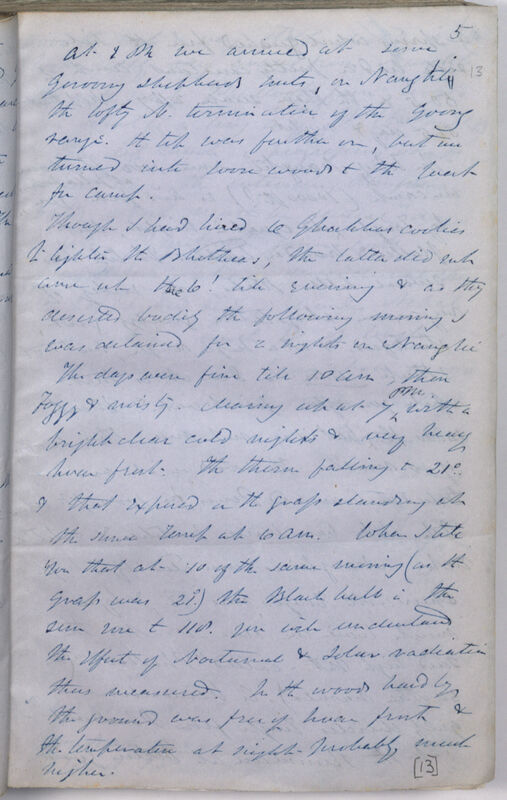 5
13
At 2 PM we arrived at some
Goroong shepherds huts, on Nanghi
the lofty N. termination of the Goong
range. It lay was further on, but we
turned into some woods to the west
for camp.
Though I had hired 6 Ghorkhas coolies
to lighten the Bhoteeas, the latter did not
come up till evening & as they
deserted bodily the following morning I
was detained for 2 nights on Nanghi
The days were fine till 10 am, then
foggy & misty. clearing up at 7 PM. with a
bright clear cold nights & very heavy
hoar frost. The therm falling to 21°.
& that exposed on the grass standing at
the same temp at 10 am. When I tell
you that at 10 of the same morning (as the
grass was 21°) the Black bulb in the
sun rose to 118. you will understand
the effect of Nocturnal & Solar radiation
thus measured. In the woods hard by
the ground was free of hoar frost &
the temperature at night probably much
higher.
[13]